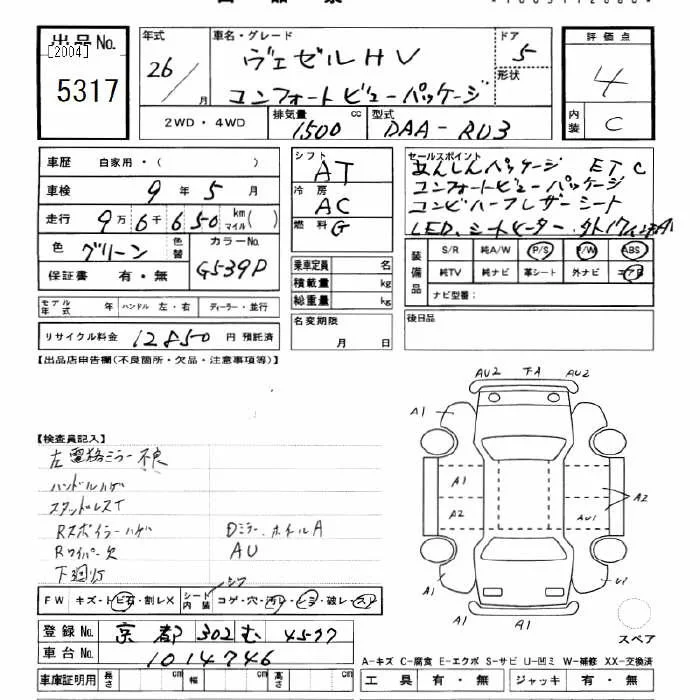 出品No.
[2004]
5317
年式
26/ 月
車名・グレード
ヴェゼル HV
コンフォートビューパッケージ
ドア
5
形状
評価点
4
内装
C
2WD・4WD
排気量
1500 cc
型式
DAA-RU3
車歴 自家用・( )
車検 9年 5月
走行 9万6千650 km マイル( )
色 グリーン 色替
カラーNo.
G539P
保証書 有・無
シフト AT
冷房 AC
燃料 G
セールスポイント
あんしんパッケージ ETC
コンフォートビューパッケージ
コンビハーフレザーシート
LED、シートヒーター
装備品
S/R 純A/W P/S P/W ABS
純TV 純ナビ 革シート 外ナビ エアB
ナビ型番:
乗車定員 名
積載量 kg
総重量 kg
モデル年式 年 ハンドル 左・右 ディーラー・並行
リサイクル料金 12850円 預託済
名変期限
月 日
後日品
【出品店申告欄(不良箇所・欠品・注意事項等)】
【検査員記入】
左電格ミラー不良
ハンドルハゲ
スタッドレスT
Rスポイラーハゲ Dミラー、ホイルA
Rワイパー欠 AU
下廻りS
FW キズ・トビ石・割レX
シート内装 コゲ・穴・汚レ・シミ・破レ・スレ
シワ
登録No. 京都 302 む 4577
車台No. 1014746
車庫証明用 長さ cm 幅 cm 高さ cm
AU2 AU2
A1
A1 A2
A2 AU1
A1 A1 U1
スペア
A-キズ C-腐食 E-エクボ S-サビ U-凹ミ W-補修 XX-交換済
工具 有・無 ジャッキ 有・無